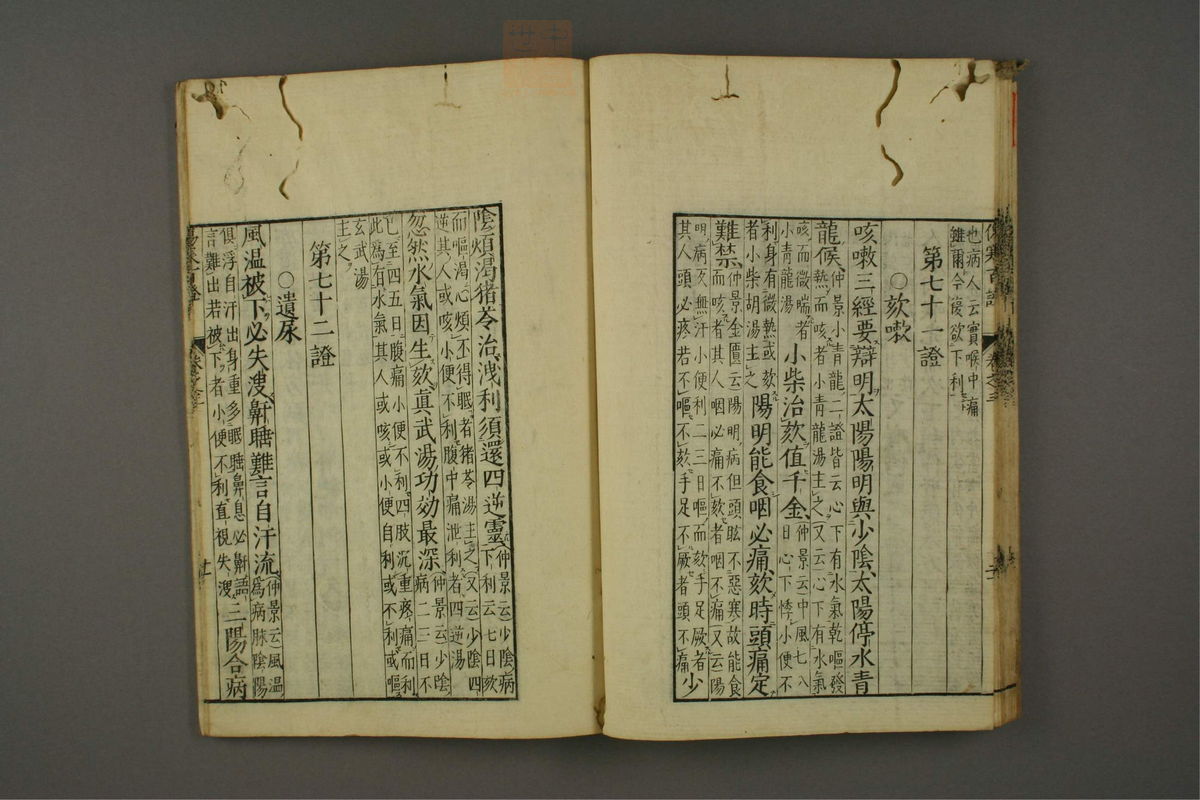 傷寒百證 卷之三
也病人云實喉中痛
雖爾今復欲下利
第七十一證
○欬嗽
咳嗽三經要辯明太陽陽明與少陰太陽停水青
龍候仲景小青龍二證皆云心下有水氣乾嘔發
熱而咳者小青龍湯主之又云心下有水氣
咳而微喘者
小青龍湯小柴治欬值千金仲景云中風七八
日心下悸小便不
利身有微熱或欬
者小柴胡湯主之陽明能食咽必痛欬時頭痛定
難禁仲景金匱云陽明病但頭眩不惡寒故能食
而咳者其人咽必痛不欬者咽不痛又云陽
明病反無汗小便利二三日嘔而欬手足厥者
其人頭必疼若不嘔不欬手足不厥者頭不痛少
陰煩渴猪苓治洩利須還四逆靈仲景云少陰病
下利云七日欬
而嘔渴心煩不得眠者猪苓湯主之又云少陰四
逆其人或咳小便不利腹中痛泄利者四逆湯
忽然水氣因生欬真武湯功効最深仲景云少陰
病二三日不
已至四五日腹痛小便不利四肢沉重疼痛而利
此為有水氣其人或咳或小便自利或不利或嘔
玄武湯
主之
第七十二證
○遺尿
風温被下必失溲鼾睡難言自汗流仲景云風温
為病脉陰陽
俱浮自汗出身重多眠睡鼻息必鼾語
言難出若被下者小便不利直視失溲三陽合病
傷寒百證 卷之三